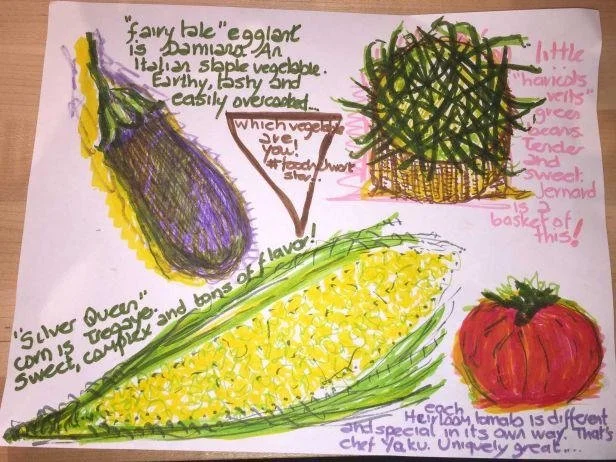 "fairy tale" egglant
is Damiana. An
Italian staple vegetable.
Earthy, tasty and
easily overcooked...
which vegetable
are
you!
#foodnetwork
star..
little
"haricots
verts"
green
beans.
Tender
and
sweet:
Jernard
is a
basket of
this!
"Silver Queen"
corn is Tregaye.
sweet, complex and tons of flavor!
each
Heirloom tomato is different
and special in its own way. That's
chef Yaku. Uniquely great....